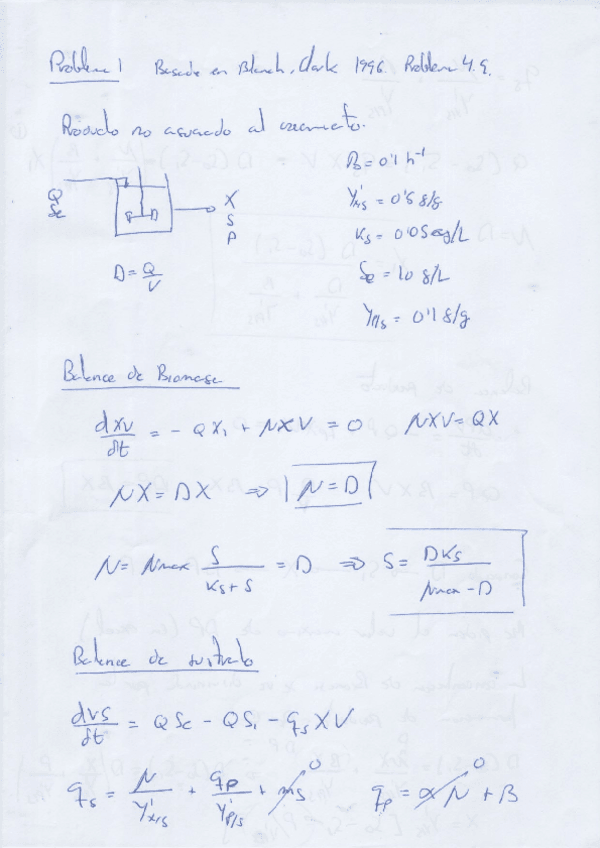 Problema 1 Basado en Blanch, Clark 1996 Problem 4.9.
Producto no asociado al crecimiento.
Q
Se
X
S
P
D = Q/V
β = 0'1 h⁻¹
Y'x/s = 0'5 g/g
Ks = 0.05 g/L
Se = 10 g/L
Yp/s = 0'1 g/g
Balance de Biomasa
dXV/dt = - QX₁ + μXV = 0 μXV = QX
μX = DX ⇒ μ = D
μ = μmax S/(Ks + S) = D ⇒ S = DKs/(μmax - D)
Balance de sustrato
dVS/dt = QSe - QS₁ - qsXV
qs = μ/Y'x/s + qp/Y'p/s + ms 0 qp = αμ + β 0